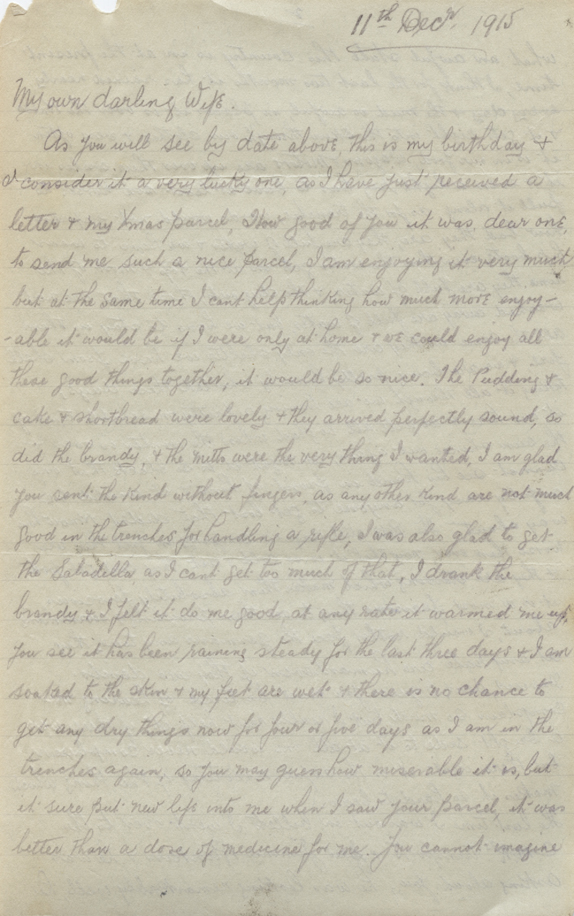 11th Decr 1915
My own darling Wife.
As you will see by date above, this is my birthday &
I consider it a very lucky one, as I have just received a
letter & my Xmas parcel, How good of you it was, dear one,
to send me such a nice parcel, I am enjoying it very much
but at the same time I cant help thinking how much more enjoy-
-able it would be if I were only at home & we could enjoy all
these good things together, it would be so nice. The Pudding &
cake & shortbread were lovely & they arrived perfectly sound, so
did the brandy, & the mitts were the very thing I wanted, I am glad
you sent the kind without fingers, as any other kind are not much
good in the trenches for handling a rifle, I was also glad to get
the Sabadilla as I cant get too much of that, I drank the
brandy & I felt it do me good, at any rate it warmed me up,
you see it has been raining steady for the last three days & I am
soaked to the skin & my feet are wet & there is no chance to
get any dry things now for four or five days as I am in the
trenches again, so you may guess how miserable it is, but
it sure put new life into me when I saw your parcel, it was
better than a dose of medicine for me. You cannot imagine